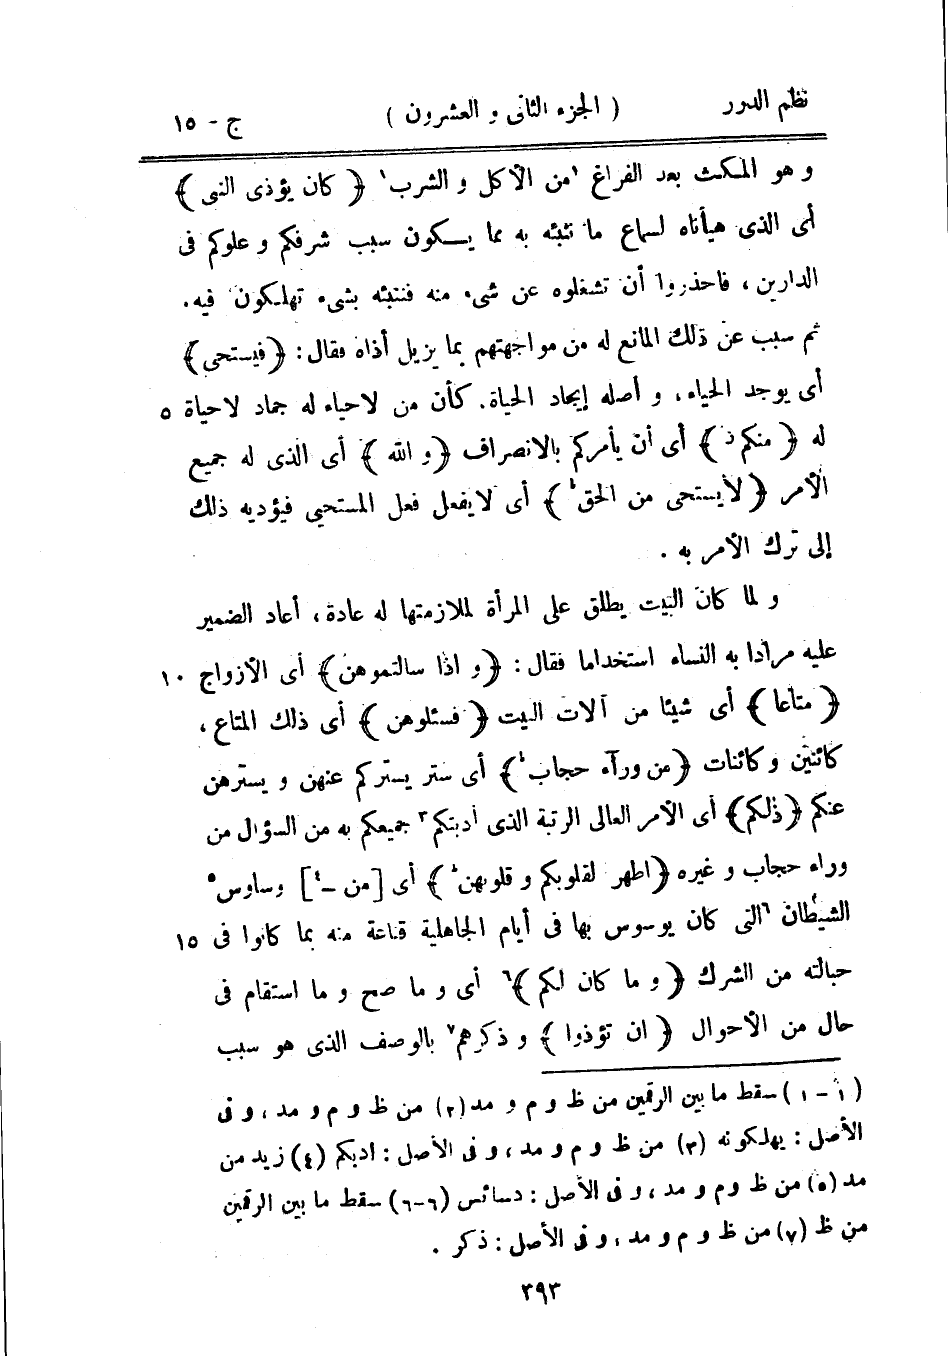 نظم الدرر ( الجزء الثانى و العشرون ) ج - ١٥
و هو المكث بعد الفراغ ١من الأكل و الشرب١ ﴿ كان يؤذى النبى ﴾
أى الذى هيأناه لسماع ما ننبئه به مما يكون سبب شرفكم و علوكم فى
الدارين ، فاحذروا أن تشغلوه عن شىء منه فننبئه بشىء تهلكون٢ فيه .
ثم سبب عن ذلك المانع له من مواجهتهم بما يزيل أذاه فقال : ﴿ فيستحى ﴾
أى يوجد الحياء ، و أصله إيجاد الحياة . كأن من لا حياء له جماد لا حياة ٥
له ﴿ منكم ز ﴾ أى أن يأمركم بالانصراف ﴿ و الله ﴾ أى الذى له جميع
الأمر ﴿ لا يستحى من الحق ط ﴾ أى لا يفعل فعل المستحيى فيؤديه ذلك
إلى ترك الأمر به .
و لما كان البيت يطلق على المرأة لملازمتها له عادة ، أعاد الضمير
عليه مرادا به النساء استخداما فقال : ﴿ و اذا سالتموهن ﴾ أى الأزواج ١٠
﴿ متاعا ﴾ أى شيئا من آلات البيت ﴿ فسئلوهن ﴾ أى ذلك المتاع ،
كائنين و كائنات ﴿ من ورآء حجاب ط ﴾ أى ستر يستركم عنهن و يسترهن
عنكم ﴿ ذلكم ﴾ أى الأمر العالى الرتبة الذى أدبتكم٣ جميعكم به من السؤال من
وراء حجاب و غيره ﴿ اطهر لقلوبكم و قلوبهن ط ﴾ أى [ من -٤ ] وساوس٥
الشيطان ٦التى كان يوسوس بها فى أيام الجاهلية قناعة منه بما كانوا فى ١٥
حبالته من الشرك ﴿ و ما كان لكم ﴾٦ أى و ما صح و ما استقام فى
حال من الأحوال ﴿ ان تؤذوا ﴾ و ذكرهم٧ بالوصف الذى هو سبب
(١ - ١) سقط ما بين الرقمين من ظ و م و مد (٢) من ظ و م و مد ، و فى
الأصل : يهلكونه (٣) من ظ و م و مد ، و فى الأصل : ادبكم (٤) زيد من
مد (٥) من ظ و م و مد ، و فى الأصل : دسائس (٦-٦) سقط ما بين الرقمين
من ظ (٧) من ظ و م و مد ، و فى الأصل : ذكر .
٣٩٣